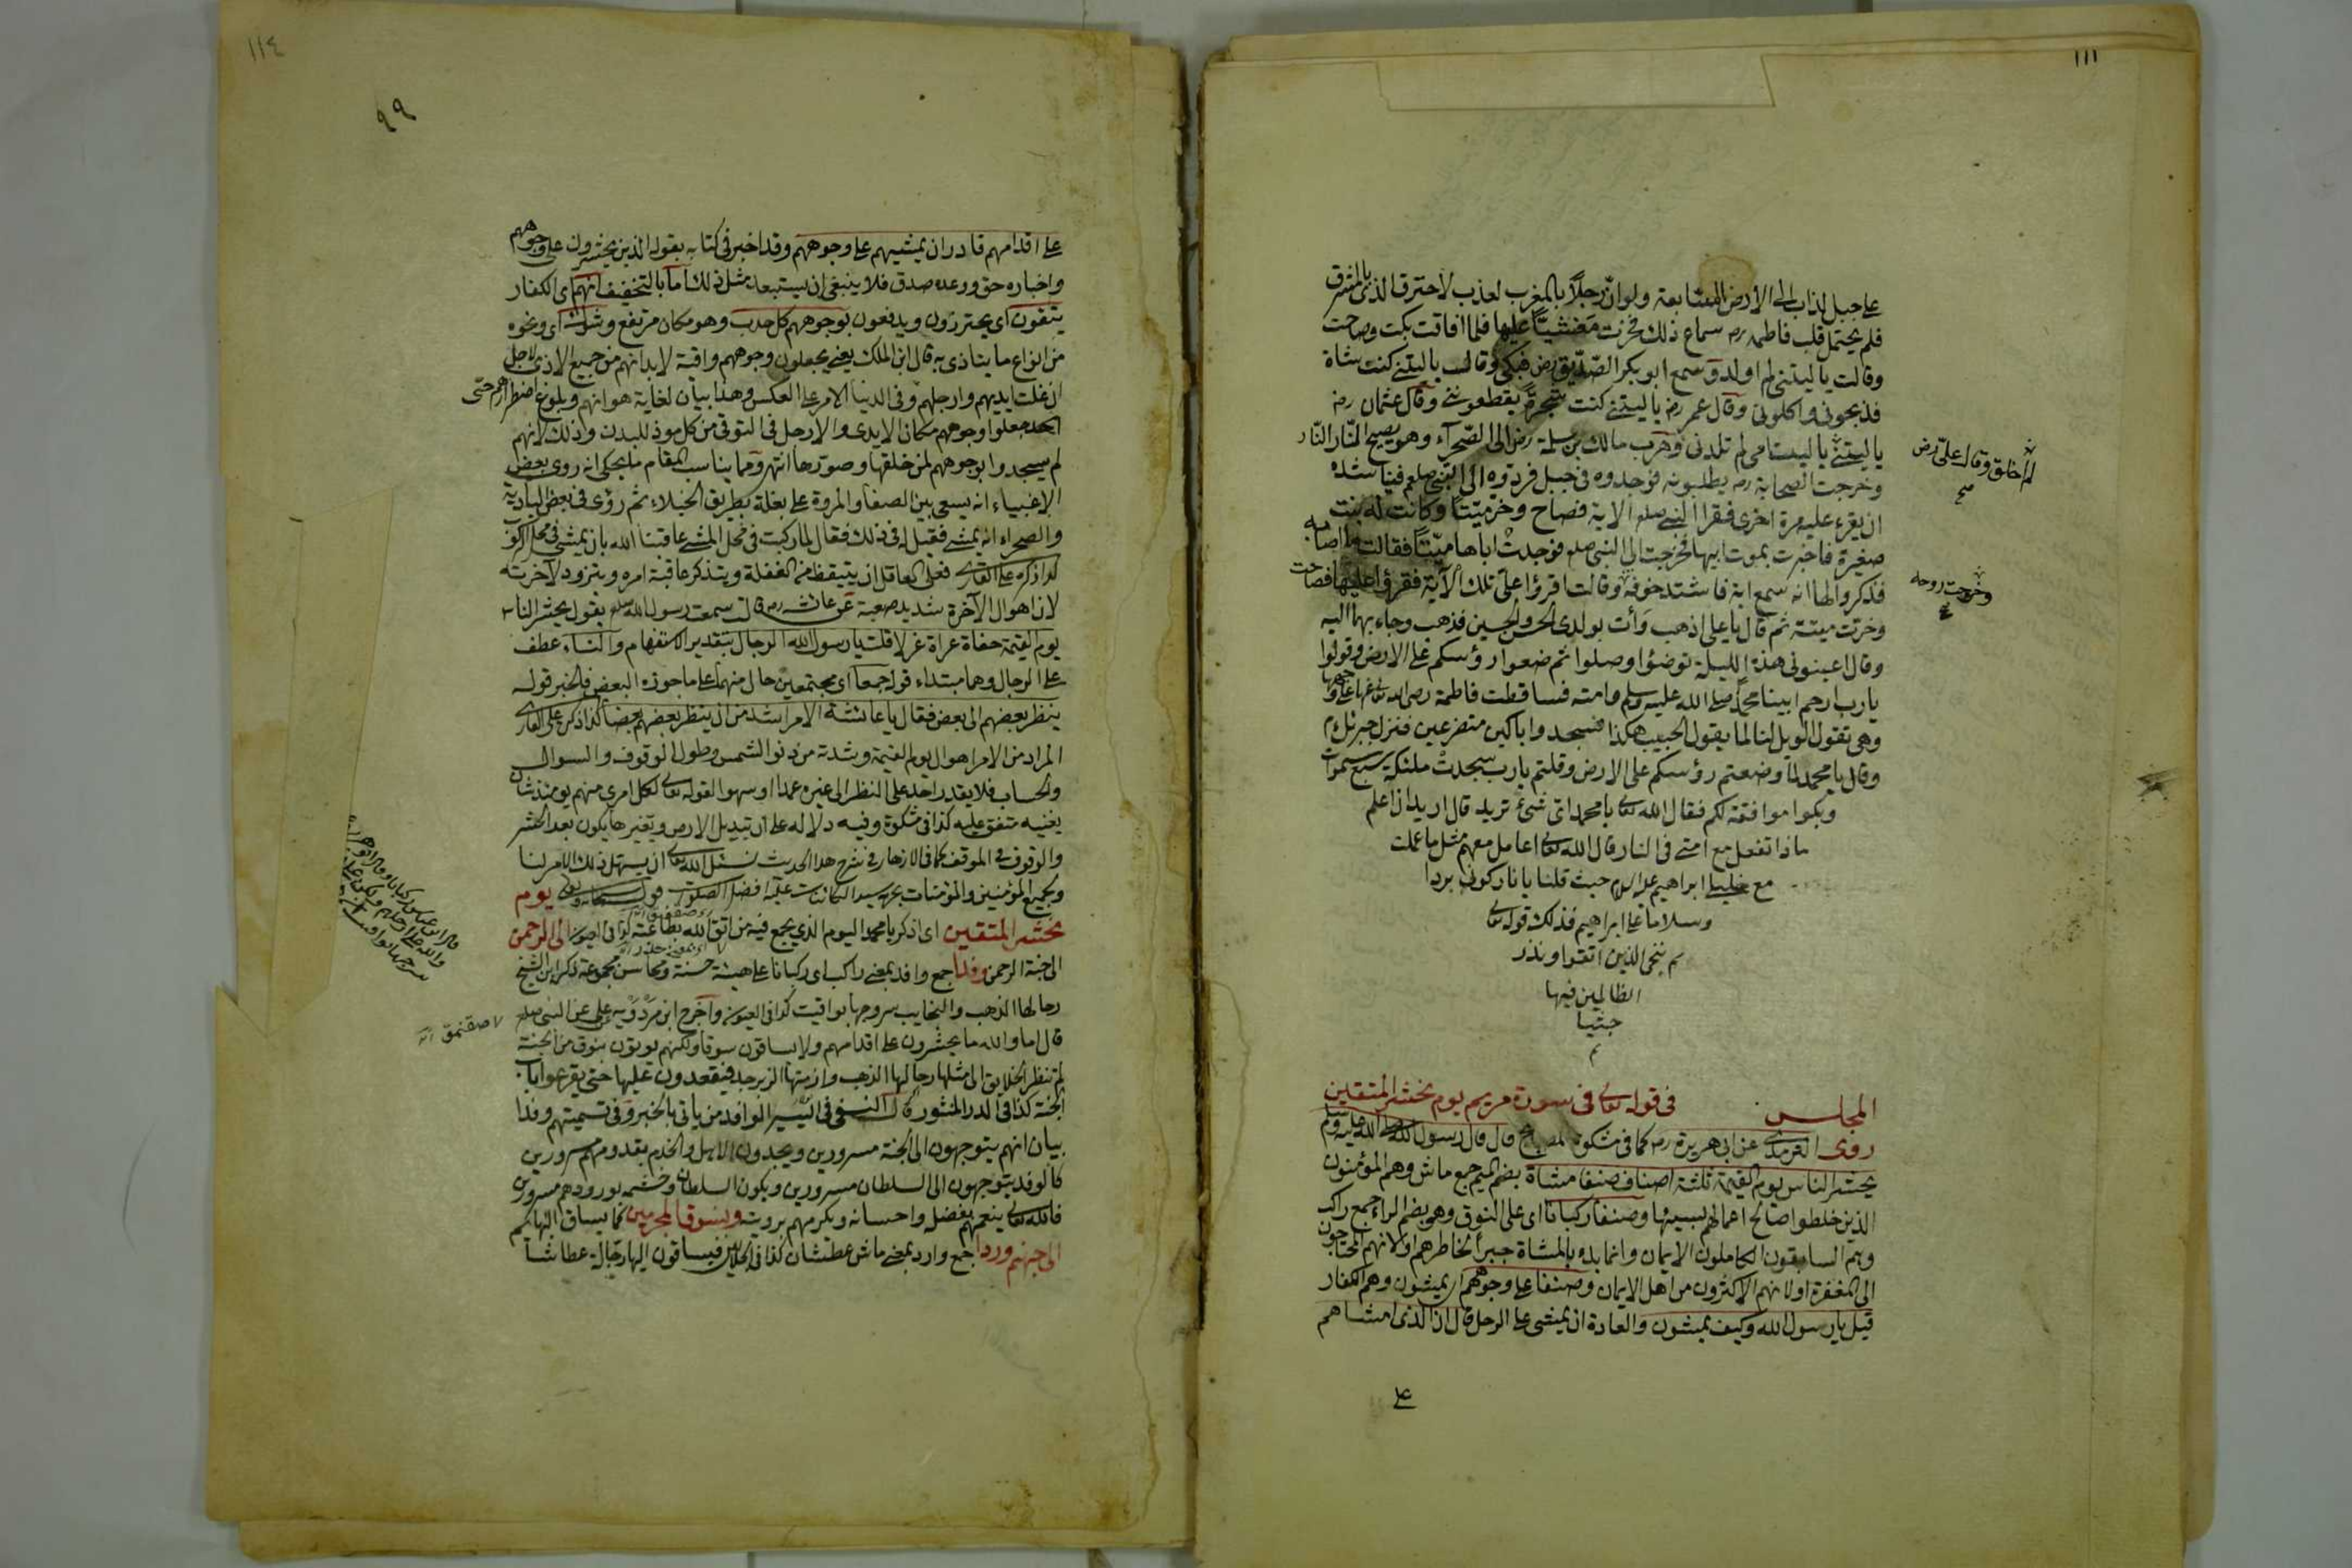 ١١١
على جبل لذاب الى الأرض السابعة ولو ان رجلاً بالمغرب لعذب لأحترق الذى بالمشرق
فلم يحتمل قلب فاطمه رضه سماع ذلك فخرت مغشيّاً عليها فلما افاقت بكت وصاحت
وقالت يا ليتنى لم اولد وسمع ابو بكر الصّدّيق رض فبكى وقال يا ليتنى كنت شاة
فذبحونى واكلونى وقال عمر رضه يا ليتنى كنت شجرة يقطعوننى وقال عثمان رضه
يا ليتنى يا ليت امى لم تلدنى وهرب مالك بن سلمة رض الى الصّحرآء وهو يصيح النّار النّار
لم اخلق وقال على رض
صح
وخرجت الصحابة رضه يطلبونه فوجدوه فى جبل فردوه الى النبى صلعم فناشده
ان يقرء عليه مرة اخرى فقرا النبى صلعم الاية فصاح وخر ميّتاً وكانت له بنت
صغيرة فاخبرت بموت ابيها فخرجت الى النبى صلعم فوجدتْ اباها ميّتاً فقالت ما اصابه
فذكروا لها انه سمع اية فاشتد خوفه وقالت اقرؤا علىّ تلك الآية فقرؤا عليها فصاحت
وخرجت روحه
صح
وخرّت ميتة ثم قال يا على اذهب وأت بولدى الحسن والحسين فذهب وجاء بهما اليه
وقال اعينونى هذه الليلة توضؤا وصلوا ثم ضعوا رؤسكم على الارض وقولوا
يا رب ارحم ابينا محمد صلى الله عليه وسلم وامته فساقطت فاطمة رضى الله تعالى عنها على وجهها
وهى تقول الويل لنا لما يقول الحبيب هكذا فسجدوا باكين متضرعين فنزل جبرئل م
وقال يا محمد لما وضعتم رؤسكم على الارض وقلتم يا رب سجدتْ ملئكة سبع سموات
وبكوا موافقة لكم فقال الله تعالى يا محمد اىّ شئ تريد قال اريد ان اعلم
ماذا تفعل مع امتى فى النار قال الله تعالى اعامل معهم مثل ما عملت
مع خليلى ابراهيم عليه السلام حيث قلنا يا نار كونى بردا
وسلاما على ابراهيم فذلك قوله تعالى
ثم ننجى الذين اتقوا ونذر
الظالمين فيها
جثيا
م
المجلس فى قوله تعالى فى سورة مريم يوم نحشر المتقين
روى الترمذى عن ابى هريرة رضه كما فى مشكوة المصابيح قال قال رسول الله صلى الله عليه وسلم
يحشر الناس يوم القيمة ثلثة اصناف صنفا مشاة بضم الميم جمع ماش وهم المؤمنون
الذين خلطوا صالح اعمالهم بسيئها وصنفا ركبانا اى على النوق وهو بضم الراء جمع راكب
وهم السابقون الكاملون الايمان وانما بدء بالمشاة جبراً لخاطرهم او لانهم المحتاجون
الى المغفرة اولا نهم الاكثرون من اهل الايمان وصنفا على وجوههم اى يمشون وهم الكفار
قيل يا رسول الله وكيف يمشون والعادة ان يمشى على الرجل قال ان الذى امشاهم
على
١١٤
٩٩
على اقدامهم قادر ان يمشيهم على وجوههم وقد اخبر فى كتابه بقوله الذين يحشرون على وجوههم
واخباره حق ووعده صدق فلا ينبغى ان يستبعد مثل ذلك اما بالتخفيف انهم اى الكفار
يتقون اى يحترزون ويدفعون بوجوههم كل حدب وهو مكان مرتفع وشوك اى ونحوه
من انواع ما يتاذى به قال ابن الملك يعنى يجعلون وجوههم واقية لابدانهم من جميع الاذى لاجل
ان غلت ايديهم وارجلهم وفى الدنيا الامر على العكس وهذا بيان لغاية هوانهم وبلوغ اضطرارهم حتى
جعلوا وجوههم مكان الايدى والارجل فى التوقى من كل موذ للبدن وذلك لانهم
لم يسجدوا بوجوههم لمن خلقها وصورها انتهى ومما يناسب المقام ما يحكى انه روى بعض
الاغبياء انه يسعى بين الصفا والمروة على بغلة بطريق الخيلاء ثم رؤى فى بعض البادية
والصحراء انه يمشى فقيل له فى ذلك فقال لما ركبت فى محل المشى عاقبنا الله بان يمشى فى محل الركوب
كذا ذكره على القارى فعلى العاقل ان يتيقظ من الغفلة ويتذكر عاقبة امره ويتزود لآخرته
لان اهوال الآخرة شديد صعبة عن عائشه رضه قالت سمعت رسول الله صلعم يقول يحشر الناس
يوم القيمة حفاة عراة غرلا قلت يا رسول الله الرجال بتقدير الاستفهام والنساء عطف
على الرجال وهما مبتداء قوله جمعا اى مجتمعين حال منهما على ما جوزه البعض فالخبر قوله
ينظر بعضهم الى بعض فقال يا عائشة الامر اشد من ان ينظر بعضهم بعضا كذا ذكره على القارى
المراد من الامر اهوال يوم القيمة وشدته من دنو الشمس وطول الوقوف والسوال
والحساب فلا يقدر احد على النظر الى غيره عمدا او سهوا لقوله تعالى لكل امرى منهم يومئذ شان
يغنيه متفق عليه كذا فى مشكوة وفيه دلالة على ان تبديل الارض وتغيرها يكون بعد الحشر
والوقوف فى الموقف كما فى الازهار فى شرح هذا الحديث نسئل الله تعالى ان يسهل ذلك الامر لنا
ولجميع المؤمنين والمؤمنات بحرمة سيد الكائنات عليه افضل الصلوات قوله سبحانه وتعالى يوم
نحشر المتقين اى اذكر يا محمد اليوم الذى يجمع فيه من اتق الله بطاعته كذا فى العيون الى الرحمن
الى جنة الرحمن وفدا جمع وافد بمعنى راكب اى ركبانا على هيئة حسنة ومحاسن مجموعة ذكره ابن الشيخ
رحالها الذهب والنجايب سروجها يواقيت كذا فى العيون واخرج ابن مردويه عن على عن النبى صلعم
قال اما والله ما يحشرون على اقدامهم ولا يساقون سوقا ولكنهم يؤتون بنوق من الجنة
لم تنظر الخلايق الى مثلها رحالها الذهب وازمتها الزبرجد فيقعدون عليها حتى يقرعوا باب
الجنة كذا فى الدر المنثور قال النسفى فى التيسير الوافد من ياتى بالخبر وفى تسميتهم وفدا
بيان انهم يتوجهون الى الجنة مسرورين ويجدون الاهل والخدم بقدومهم مسرورين
كالوفد يتوجهون الى السلطان مسرورين ويكون السلطان وحشمه بورودهم مسرورين
فالله تعالى ينعمهم بفضله واحسانه ويكرمهم برويته ونسوق المجرمين كما يساق البهايم
الى جهنم وردا جمع وارد بمعنى ماش عطشان كذا فى الجلالين فيساقون اليها رجالة عطاشا